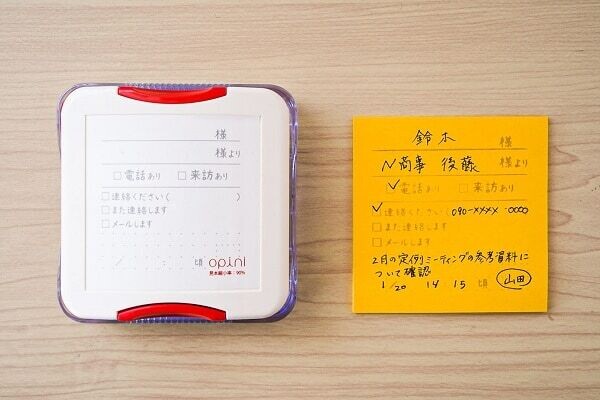 様
様より
□電話あり □来訪あり
□連絡ください( )
□また連絡します
□メールします
/ : 頃
opini
見本縮小率:90%
鈴木 様
N商事 後藤 様より
☑電話あり □来訪あり
☑連絡ください(090-XXXX-0000
□また連絡します
□メールします
2月の定例ミーティングの参考資料に
ついて確認
1/20 14 15 頃 山田